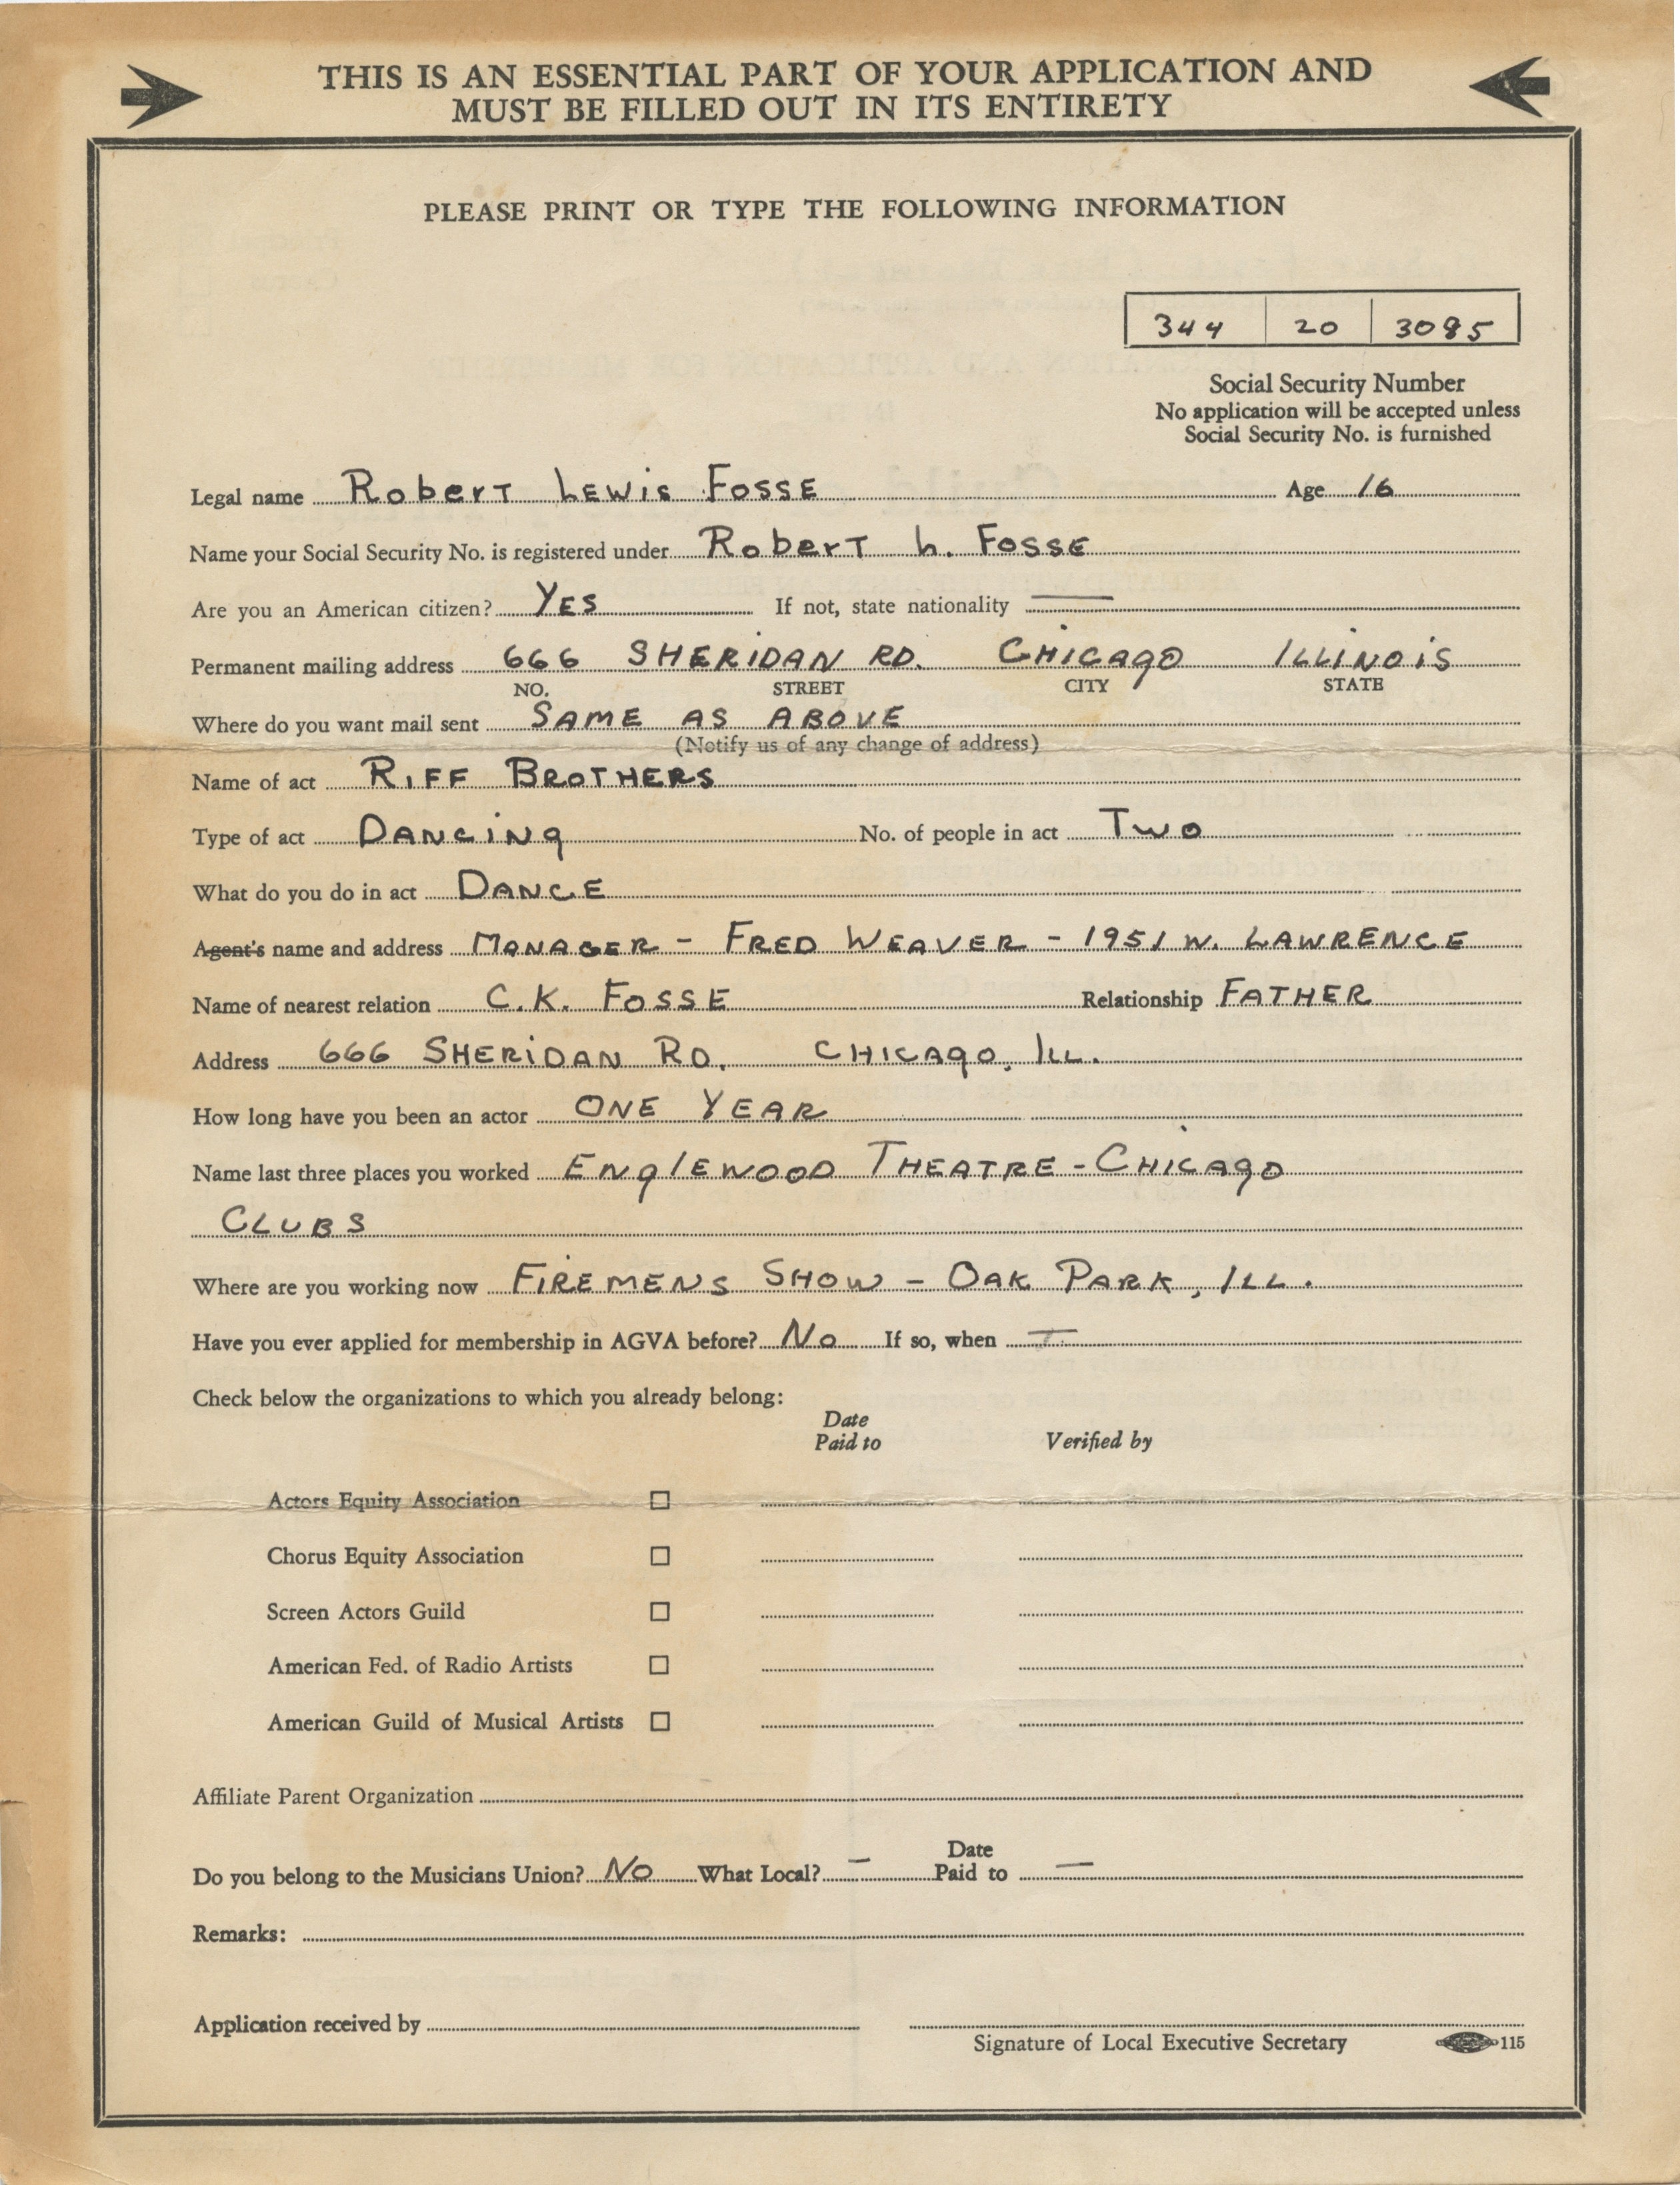 THIS IS AN ESSENTIAL PART OF YOUR APPLICATION AND
MUST BE FILLED OUT IN ITS ENTIRETY
PLEASE PRINT OR TYPE THE FOLLOWING INFORMATION
344 20 3085
Social Security Number
No application will be accepted unless
Social Security No. is furnished
Legal name Robert Lewis Fosse Age 16
Name your Social Security No. is registered under Robert L. Fosse
Are you an American citizen? YES If not, state nationality —
Permanent mailing address 666 SHERIDAN RD. CHICAGO ILLINOIS
NO. STREET CITY STATE
Where do you want mail sent SAME AS ABOVE
(Notify us of any change of address)
Name of act RIFF BROTHERS
Type of act DANCING No. of people in act TWO
What do you do in act DANCE
Agent's name and address MANAGER - FRED WEAVER - 1951 W. LAWRENCE
Name of nearest relation C.K. FOSSE Relationship FATHER
Address 666 SHERIDAN RD. CHICAGO, ILL.
How long have you been an actor ONE YEAR
Name last three places you worked ENGLEWOOD THEATRE - CHICAGO
CLUBS
Where are you working now FIREMENS SHOW - OAK PARK, ILL.
Have you ever applied for membership in AGVA before? No If so, when —
Check below the organizations to which you already belong:
Date
Paid to Verified by
Actors Equity Association
Chorus Equity Association
Screen Actors Guild
American Fed. of Radio Artists
American Guild of Musical Artists
Affiliate Parent Organization
Date
Do you belong to the Musicians Union? NO What Local? — Paid to —
Remarks:
Application received by
Signature of Local Executive Secretary 115